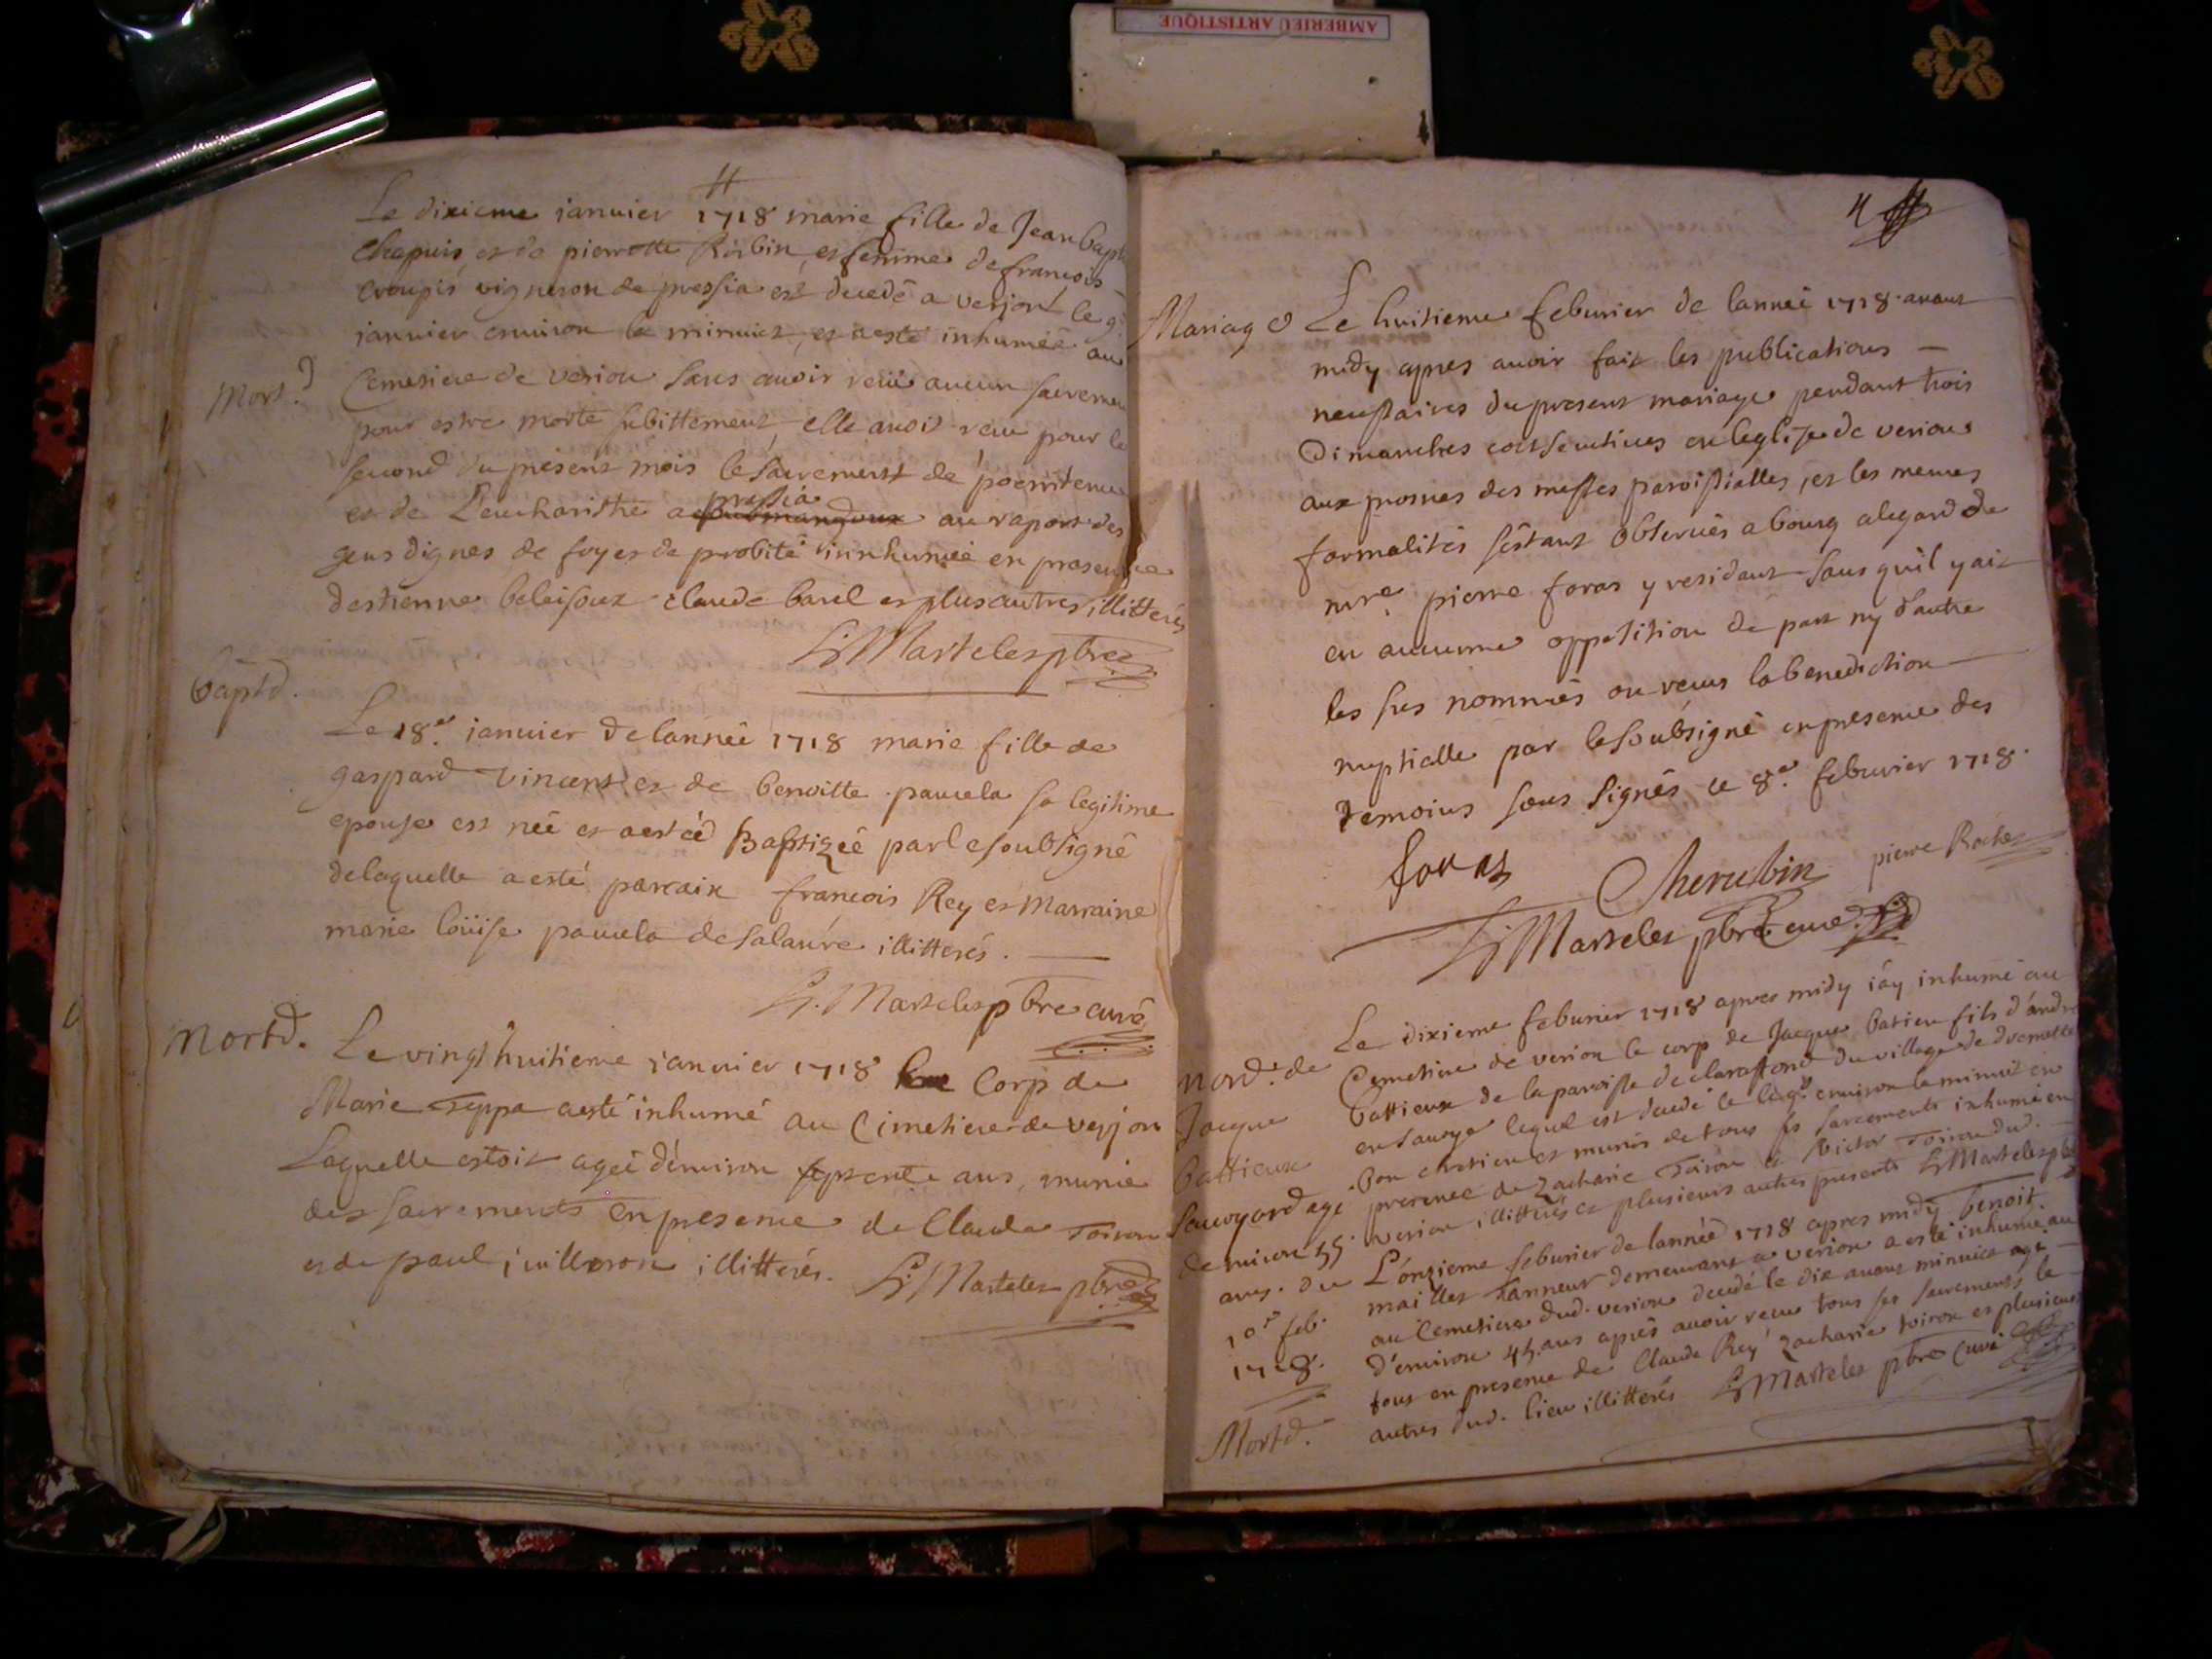 AMBERIEU ARTISTIQUE
Le dixieme januier 1718 marie fille de Jean bapt
Chapuis et de pierrotte Robin et femme de francois
croupis vigneron de pressia est decedé a verjont le 9
januier enuiron le minuict, et a esté inhumée au
Mort.
Cemetiere de verion sans auoir receu aucun sacremen
pour estre morte subittement elle auoit receu pour le
second du present mois le sacrement de poenitence
et de L'eucharistie a pressia au raport des
gens dignes de foy et de probité innhumée en presence
d'estienne beleisoux claude baril et plus autres illitterés
Martelet pbre
bapt.
Le 18e januier de lannée 1718 marie fille de
gaspard vincent et de benoitte pauuela sa legitime
epouse est née et a esteé Baptizée par le soubsigné
de laquelle a esté parrain francois Rey et Marraine
marie loüise pauuela de salaure illitterés.
Martelet pbre curé
Mort.
Le vingt huitieme januier 1718 Corp de
Marie Teppa a esté inhumé au Cimetiere de verjon
Laquelle estoit ageé d'enuiron septente ans, munie
des sacrements en presence de Claude Toiron
et de paul juilleron illitterés. Martelet pbre
4
Mariage
Le huitieme feburier de lanneé 1718 auant
midy apres auoir fait les publications
necessaires du present mariage pendant trois
Dimanches consecutiues en leglise de verion
aux prosnes des messes paroissialles, et les memes
formalités s'estant obseruées a bourg alegard de
mre pierre foras y residant sans qu'il y ait
eu aucunne opposition de part ny d'autre
les sus nommés on receus la benediction
nuptialle par le soubsigné en presence des
temoins sous signés ce 8e feburier 1718.
foras
Cherubin
pierre Rochet
Martelet pbre curé
Mort. de
Jacque
battieux
sauoyard agé
denuiron 55
ans. du
10e feb.
1718.
Le dixieme feburier 1718 apres midy j'ay inhumé au
Cemetiere de verion le corp de Jacque batieu fils d'andre
battieux de la paroisse de clarafond du village de
en sauoye lequel est decedé le enuiron le minuit en
bon chretien et munis de tous ses sacrements inhumé en
presence de Zacharie Toiron et victor Toiron dud.
verion illitterés et plusieurs autres presents Martelet pbre
Mort.
L'onzieme feburier de lanneé 1718 apres midy benoit
maillet Tanneur demeurant a verion a esté inhumé au
au Cemetiere dud. verion decedé le dix auant minuict agé
d'enuiron 45 ans aprés auoir receu tous ses sacrements le
tous en presence de Claude Rey Zacharie toiron et plusieurs
autres dud. lieu illitterés Martelet pbre curé